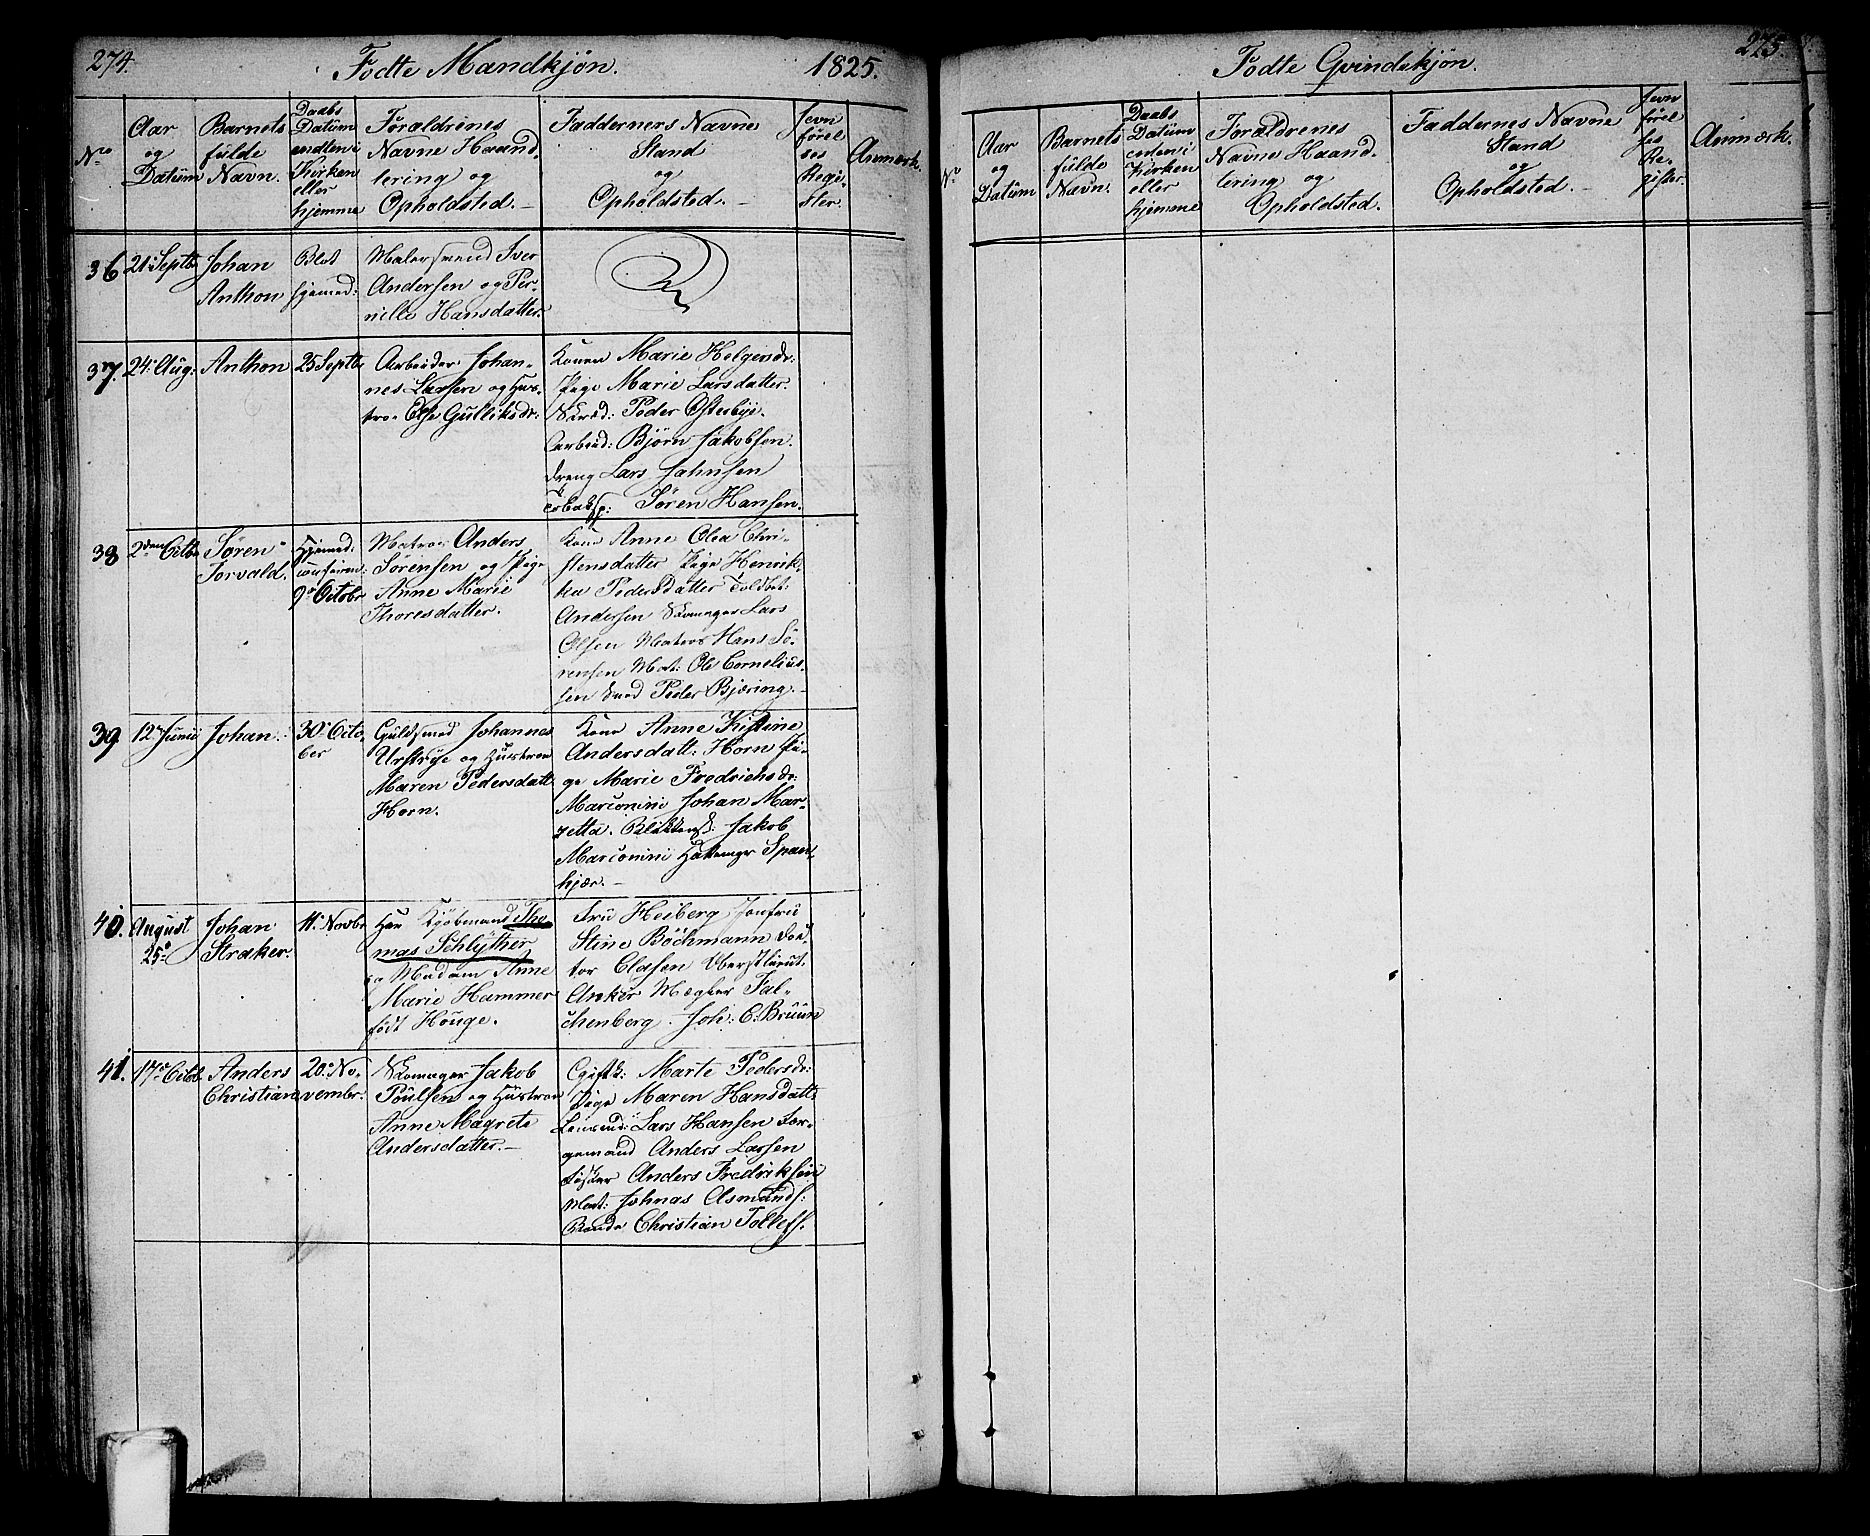 274.
Fodte Mandkjøn.
1825.
No
Aar
og
Datüm
Barnets
fulde
Navn.
Daabs
Datüm
endten i
Kirken
eller
hjemme
Forældrenes
Navne Haand-
tering og
Opholdsted.
Fadderners Navne
Stand
og
Opholdsted.
Jevn
førel
ses
Regi-
ster.
Anmærk.
36
21 Septbr
Johan
Anthon
Blot
hjemmed:
Malersvend Iver
Andersen og Per-
nille Hansdatter.
37.
24 Aug:
Anthon
25 Septb
Arbeider Johan-
nes Larsen og Hus-
tro Else Gulliksdr:
Konen Marie Helgersdr:
Pige Marie Larsdatter.
Skræd: Peder Østerbye.
Arbeid: Björn Jakobsen.
dreng Lars Jahnsen
Søren Hansen.
38
2den Octb
Søren
Torvald.
Hjemmed:
9 Octobr
Matros Anders
Sørensen og Pige
Anne Marie
Thoresdatter.
Kone Anne Olea Chri-
stensdatter Pige Henrik-
ka Pedersdatter Toldbet:
Andersen Skomager Lars
Olsen Matros Hans Sö-
rensen Mat: Ole Cornelius-
sen Smed Peder Bjering.
39
12 Junii
Johan.
30 Octo-
ber
Guldsmed Johannes
Urstrye og Hustroe
Maren Pedersdatt
Horn.
Kone Anne Kistine
Andersdatt: Horn Pi-
ge Marie Fredrichsdr:
Marconini Johan Mar-
zetta. Blikkensl: Jakob
Marconini Hattemager Span-
hjær.
40.
August
25
Johan
Straker.
11 Novbr
Herr Kjøbmand Tho-
mas Schlÿther
og Madam Anne
Marie Hammer
født Houge.
Fru Heiberg Jomfru
Stine Böchmann Dok-
tor Clasen Oberstlieut:
Anker Mægler Fal-
chenberg. Joh: C: Bruun
41.
17 Octob.
Anders
Christian
20 No-
vembr:
Skomager Jakob
Poulsen og Hustroe
Anne Magrete
Andersdatter.
Giftk: Marte Pedersdr:
Pige Maren Hansdatt:
Lars Hansen Far-
gemand Anders Larsen
Fisker Anders Fredriksen
Mat: Johnas Asmunds:
Bonde Christian Tollefs.
275.
Fodte Qvindekjön.
No
Aar
og
Datüm
Barnets
fulde
Navn.
Daabs
Datüm
enten i
Kirken
eller
hjemme
Forældrenes
Navne Haand-
tering og
Opholdsted.
Faddernes Navne
Stand
og
Opholdsted.
Jevn
førel
ses
Re-
gister.
Anmærk.